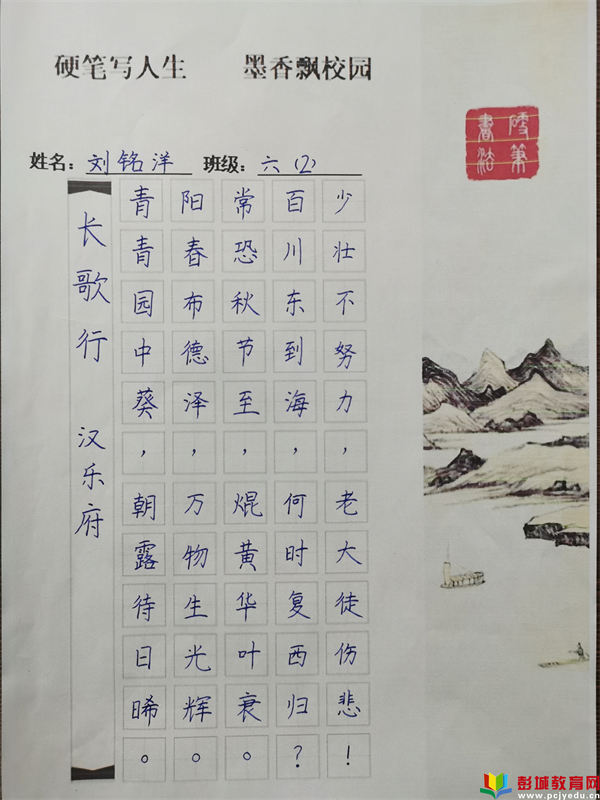 硬笔写人生 墨香飘校园
硬笔
書法
姓名：刘铭洋 班级：六（2）
长歌行 汉乐府
青青园中葵，朝露待日晞。
阳春布德泽，万物生光辉。
常恐秋节至，焜黄华叶衰。
百川东到海，何时复西归？
少壮不努力，老大徒伤悲！
彭城教育网
www.pcjyedu.cn